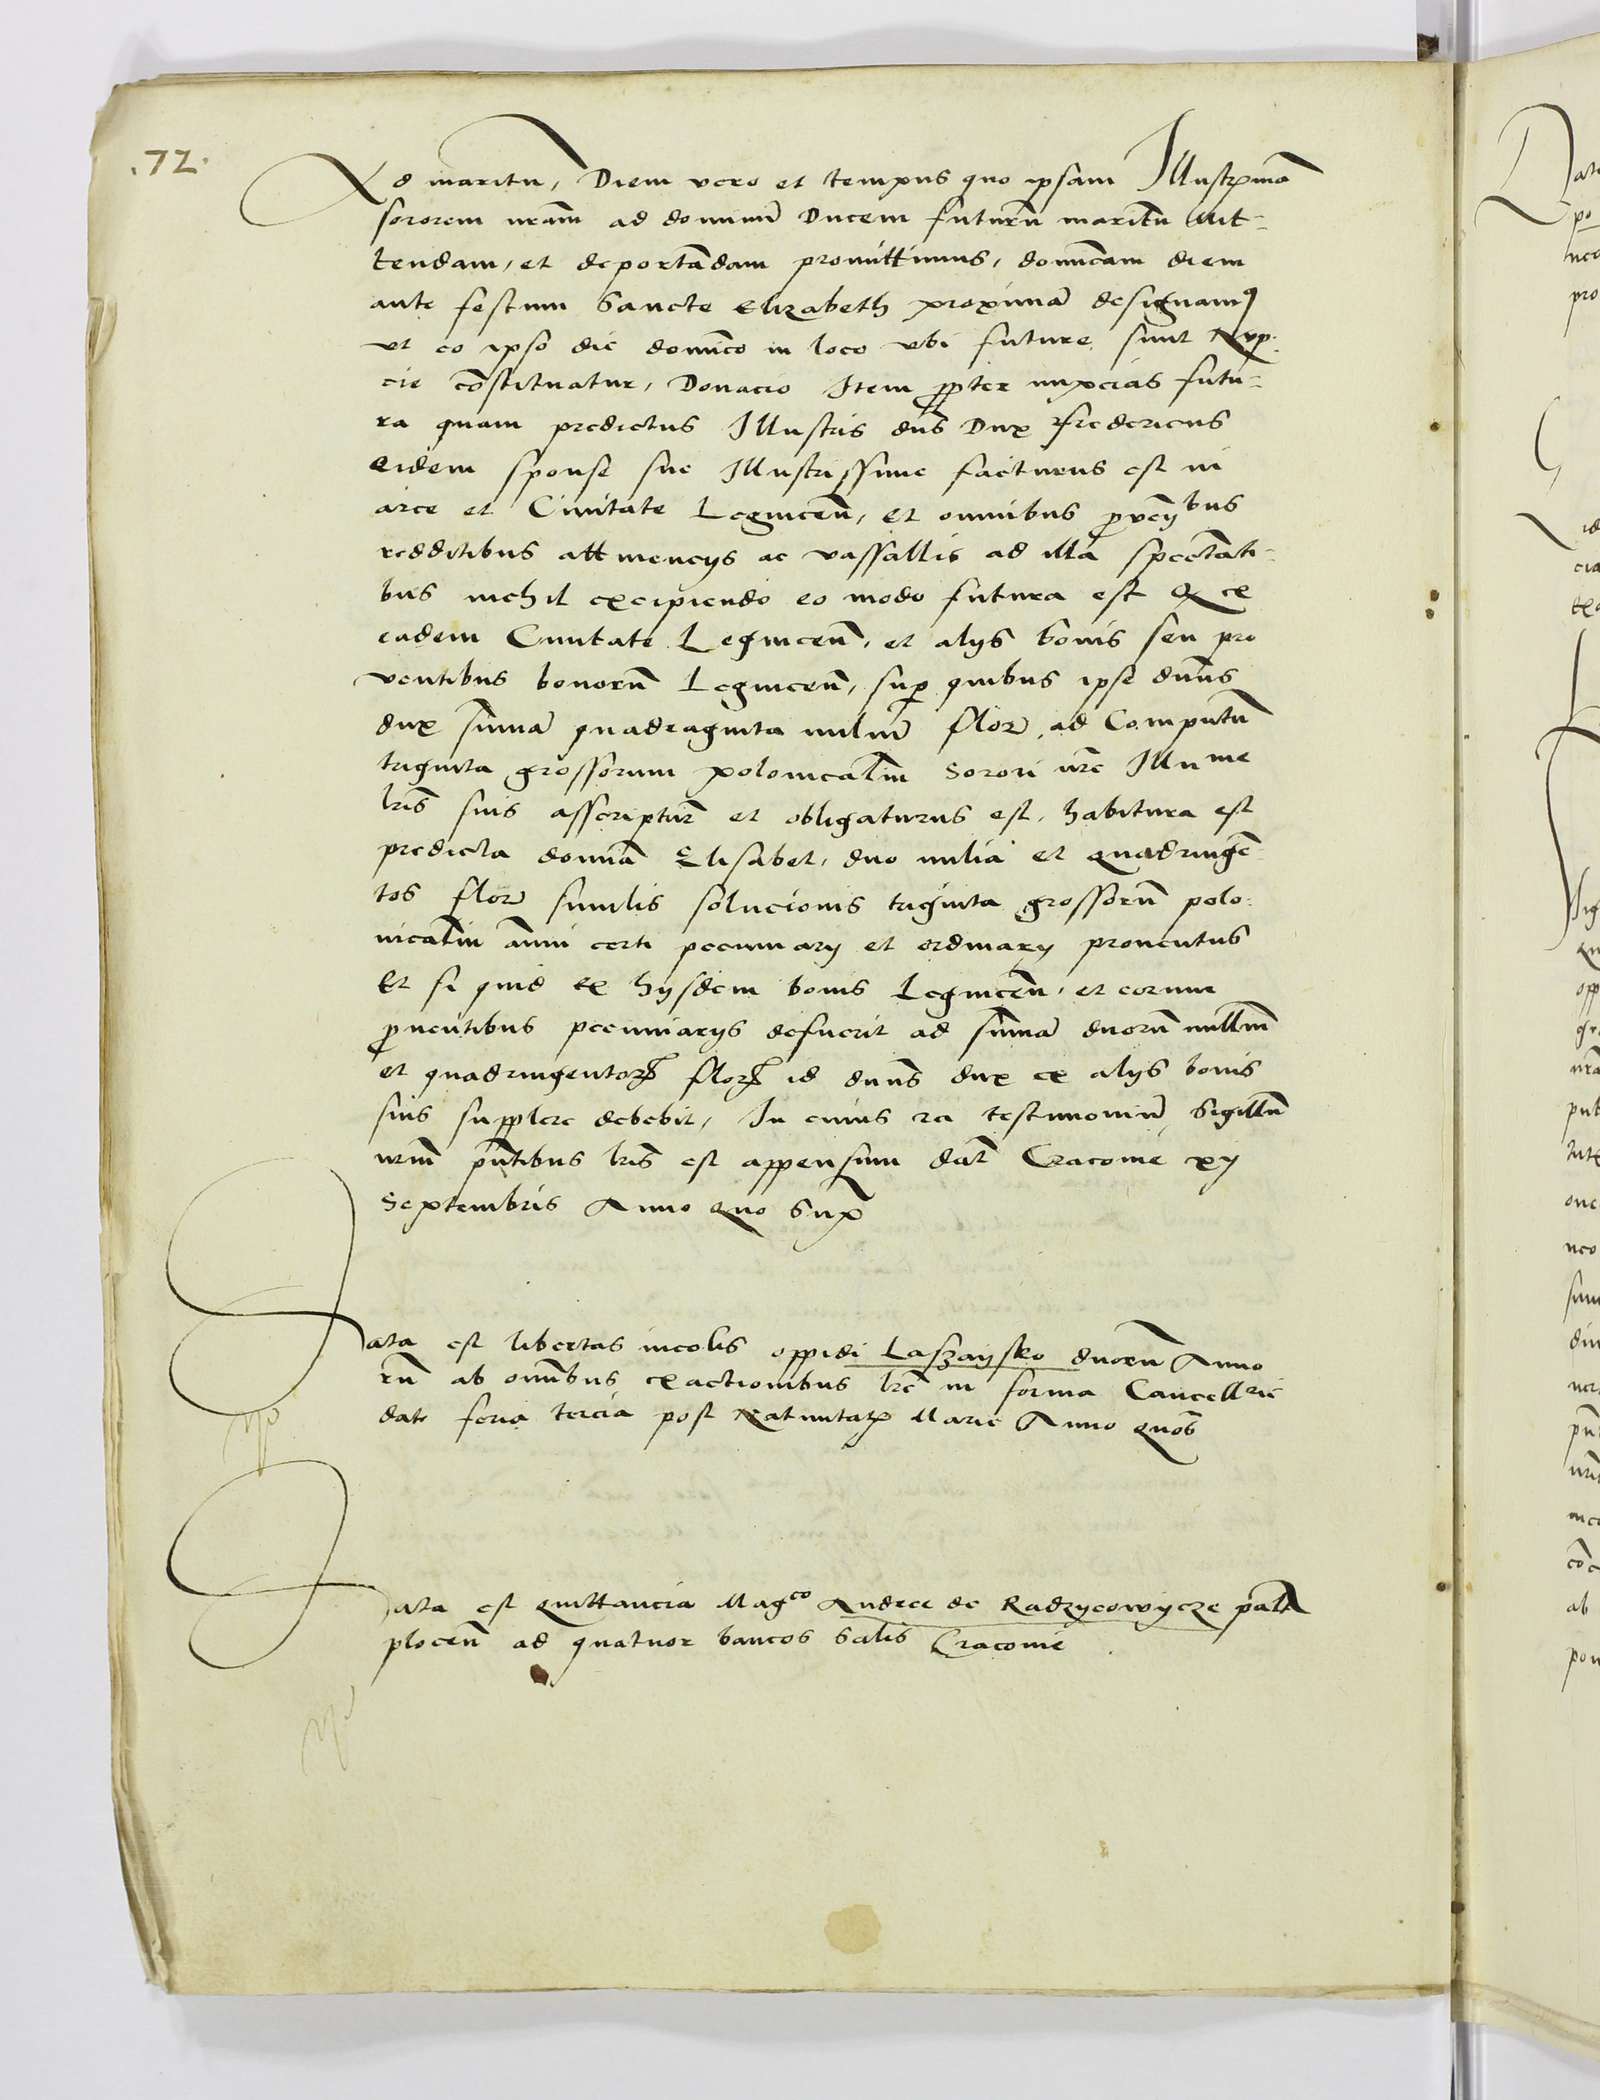 .72.
Ad maritu, Diem vero et tempus quo ipsam Illustrima
sororem nram ad dominu Ducem futuru maritu Mit-
tendam, et deportadam promittimus, domicam diem
ante festum Sancte Elizabeth proxima designamus
vt eo ipso die domico in loco vbi future sunt Nup-
cie constituatur, Donacio Item propter nupcias futu-
ra quam predictus Illustris dns Dux Fredericus
Eidem sponse sue Illustrissime facturus est in
arce et Civitate Legnicen, et omnibus provenybus
redditibus attinencys ac vassallis ad illa spectati-
bus nichil excipiendo eo modo futura est Q ex
eadem Civitate Legnicen, et alys bonis seu pro
ventibus bonoru Legnicen, sup quibus ipse dnus
dux suma quadraginta miliu flor ad Computu
triginta grossorum polonicaliu Sorori nre Illu me
lris suis asscriptur et obligaturus est, habitura est
predicta domina Elisabet, duo milia et quadringe-
tos flor similis solucionis triginta grossoru polo-
nicaliu anni certi pecuniary et ordinary proventus
Et si quid ex hysdem bonis Legnicen, et eorum
proventibus pecuniarys defuerit ad suma duoru milliu
et quadringentor flor id dnus dux ex alys bonis
suis supplere debebit, In cuius rei testimoniu Sigillu
nrm pntibus lris est appensum dat Cracovie xy
Septembris Anno Quo Supra
Data est libertas incolis oppidi Laszaysko duoru Anno
ru ab omnibus exactionibus lre in forma Cancellrie
date feria tercia post Nativitatem Marie Anno Quos
Data est Quittancia Magco Andree de Radzycowycze palt
plocen ad quatuor bancos Salis Cracovie .